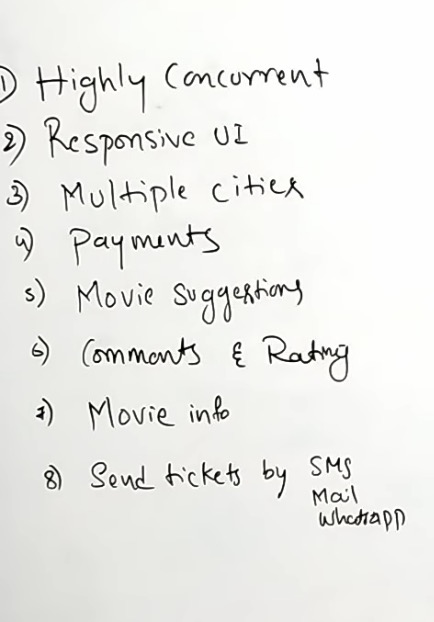 1) Highly Concurrent
2) Responsive UI
3) Multiple cities
4) Payments
5) Movie Suggestions
6) Comments & Rating
7) Movie info
8) Send tickets by SMS
Mail
Whatsapp